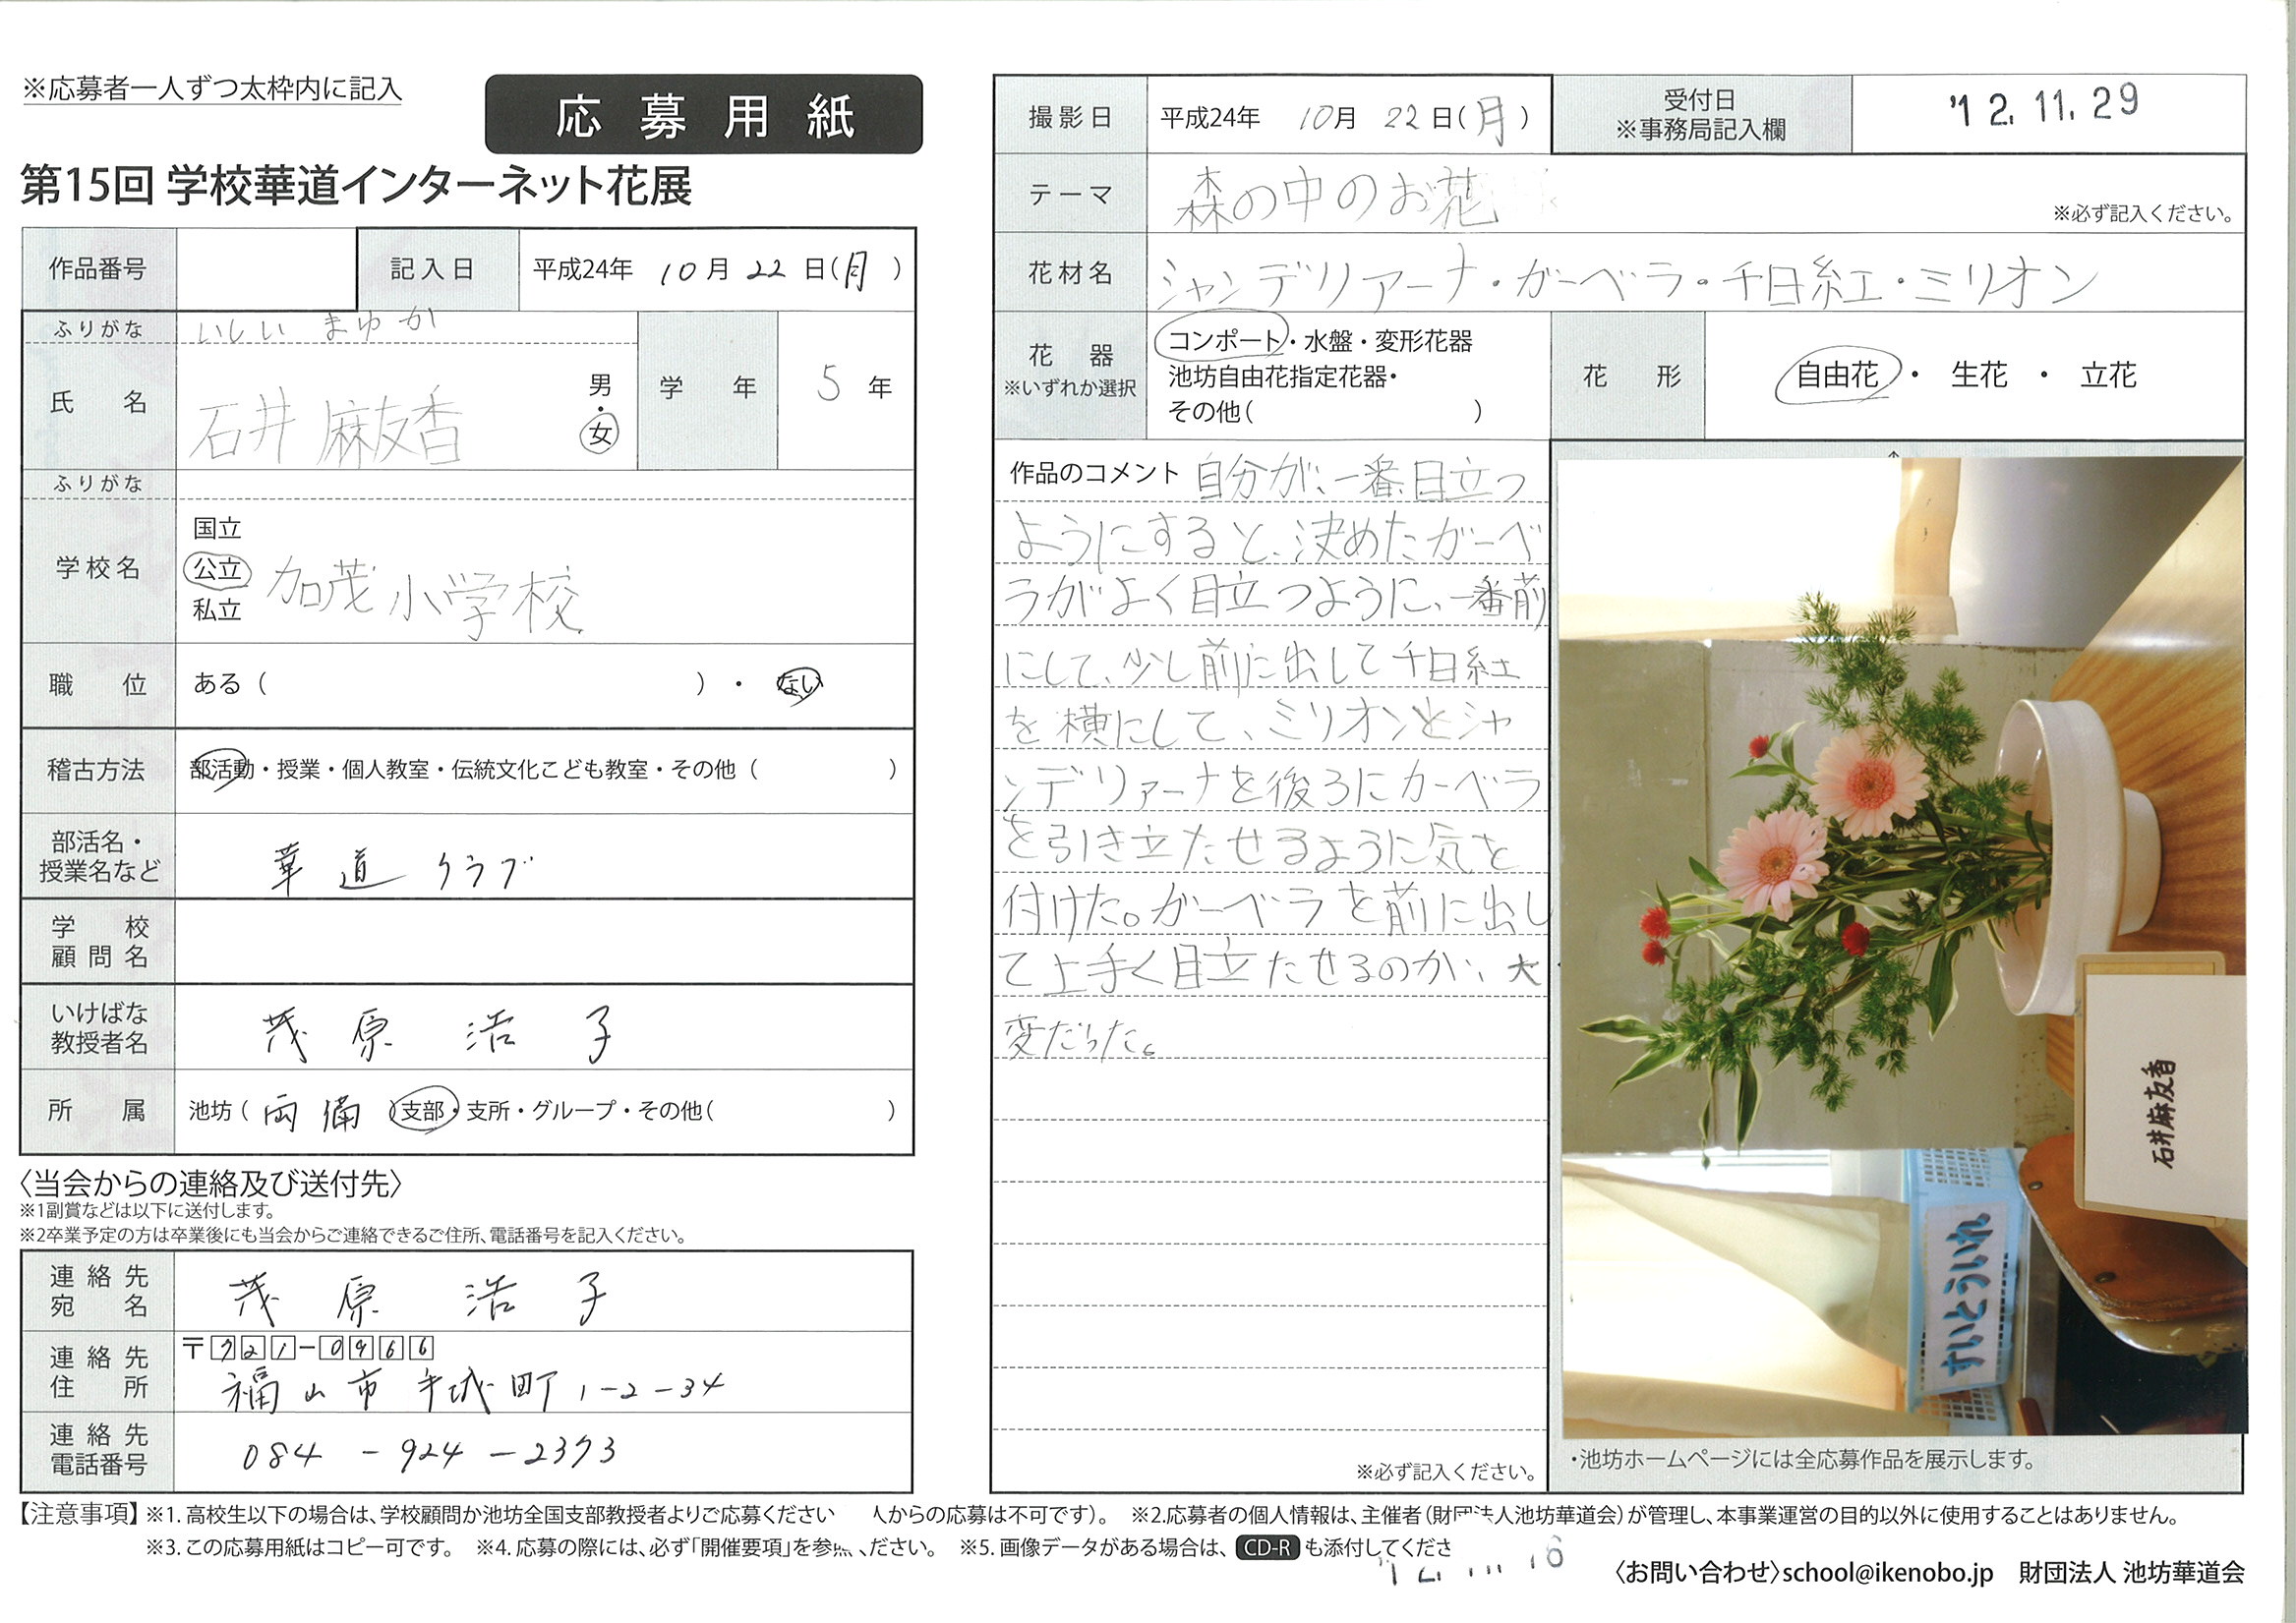 ※応募者一人ずつ太枠内に記入
応募用紙
第15回 学校華道インターネット花展
作品番号
記入日 平成24年 10月 22日(月)
ふりがな いしい まゆか
氏名 石井 麻友香 男・女
学年 5年
ふりがな
学校名 国立 公立 私立 加茂小学校
職位 ある( )・ない
稽古方法 部活動・授業・個人教室・伝統文化こども教室・その他( )
部活名・授業名など 華道クラブ
学校顧問名
いけばな教授者名 茂原 浩子
所属 池坊(両備)支部・支所・グループ・その他( )
〈当会からの連絡及び送付先〉
※1副賞などは以下に送付します。
※2卒業予定の方は卒業後にも当会からご連絡できるご住所、電話番号を記入ください。
連絡先宛名 茂原 浩子
連絡先住所 〒721-0966
福山市手城町1-2-34
連絡先電話番号 084-924-2373
撮影日 平成24年 10月 22日(月)
受付日 ※事務局記入欄 '12.11.29
テーマ 森の中のお花 ※必ず記入ください。
花材名 シャンデリアーナ・ガーベラ・千日紅・ミリオン
花器 ※いずれか選択
コンポート・水盤・変形花器
池坊自由花指定花器・
その他( )
花形 自由花・生花・立花
作品のコメント 自分が、一番目立つ
ようにすると、決めたガーベ
ラがよく目立つように、一番前
にして、少し前に出して千日紅
を横にして、ミリオンとシャ
ンデリァーナを後ろにガーベラ
を引き立たせるように気を
付けた。ガーベラを前に出し
て上手く目立たせるのが、大
変だった。
※必ず記入ください。
石井麻友香
すいとういれ
・池坊ホームページには全応募作品を展示します。
【注意事項】※1.高校生以下の場合は、学校顧問か池坊全国支部教授者よりご応募ください 人からの応募は不可です)。 ※2.応募者の個人情報は、主催者(財団法人池坊華道会)が管理し、本事業運営の目的以外に使用することはありません。
※3.この応募用紙はコピー可です。 ※4.応募の際には、必ず「開催要項」を参照ください。 ※5.画像データがある場合は、CD-Rも添付してくださ
〈お問い合わせ〉school@ikenobo.jp 財団法人 池坊華道会